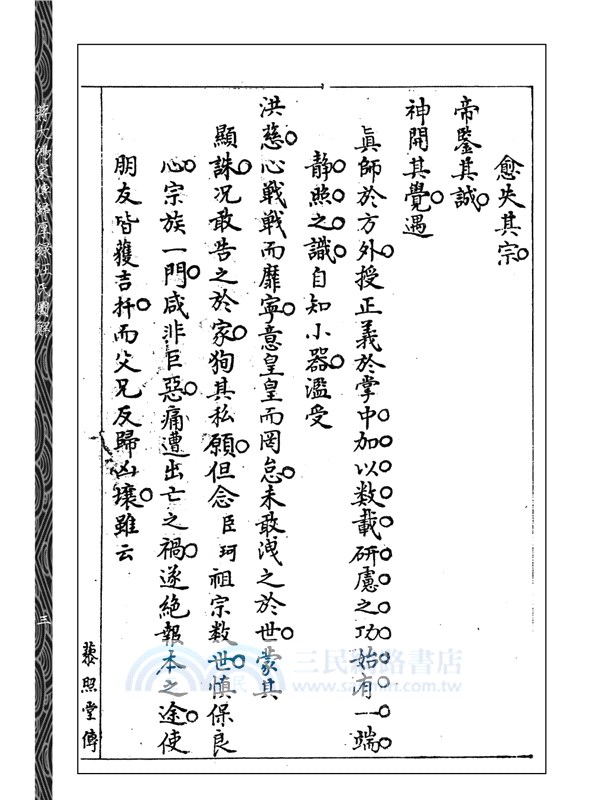 愈失其宗
帝鑒其誠
神開其覺遇
眞師於方外授正義於掌中加以数載研慮之功始有一端
靜照之識自知小器濫受
洪慈心戰戰而靡寧意皇皇而罔怠未敢洩之於世蒙其
顯誅况敢告之於家狥其私願但念臣珂祖宗数世慎保良
心宗族一門咸非巨惡痛遭出亡之禍遂絕報本之途使
朋友皆獲吉扞而父兄反歸凶壤雖云
藜照堂傳
三
三民網路書店
www.sanmin.com.tw